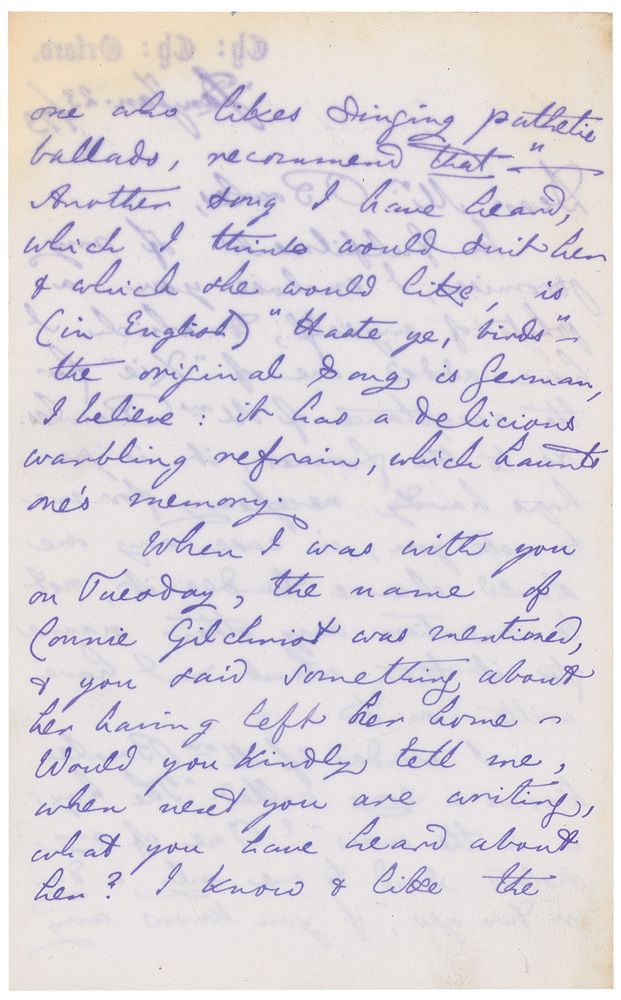 one who likes singing pathetic
ballads, recommend that —"
Another song I have heard,
which I think would suit her
& which she would like, is
(in English) "Haste ye, birds" —
the original song is German,
I believe: it has a delicious
warbling refrain, which haunts
one's memory.
When I was with you
on Tuesday, the name of
Connie Gilchrist was mentioned,
& you said something about
her having left her home —
Would you kindly tell me,
when next you are writing,
what you have heard about
her? I know & like the